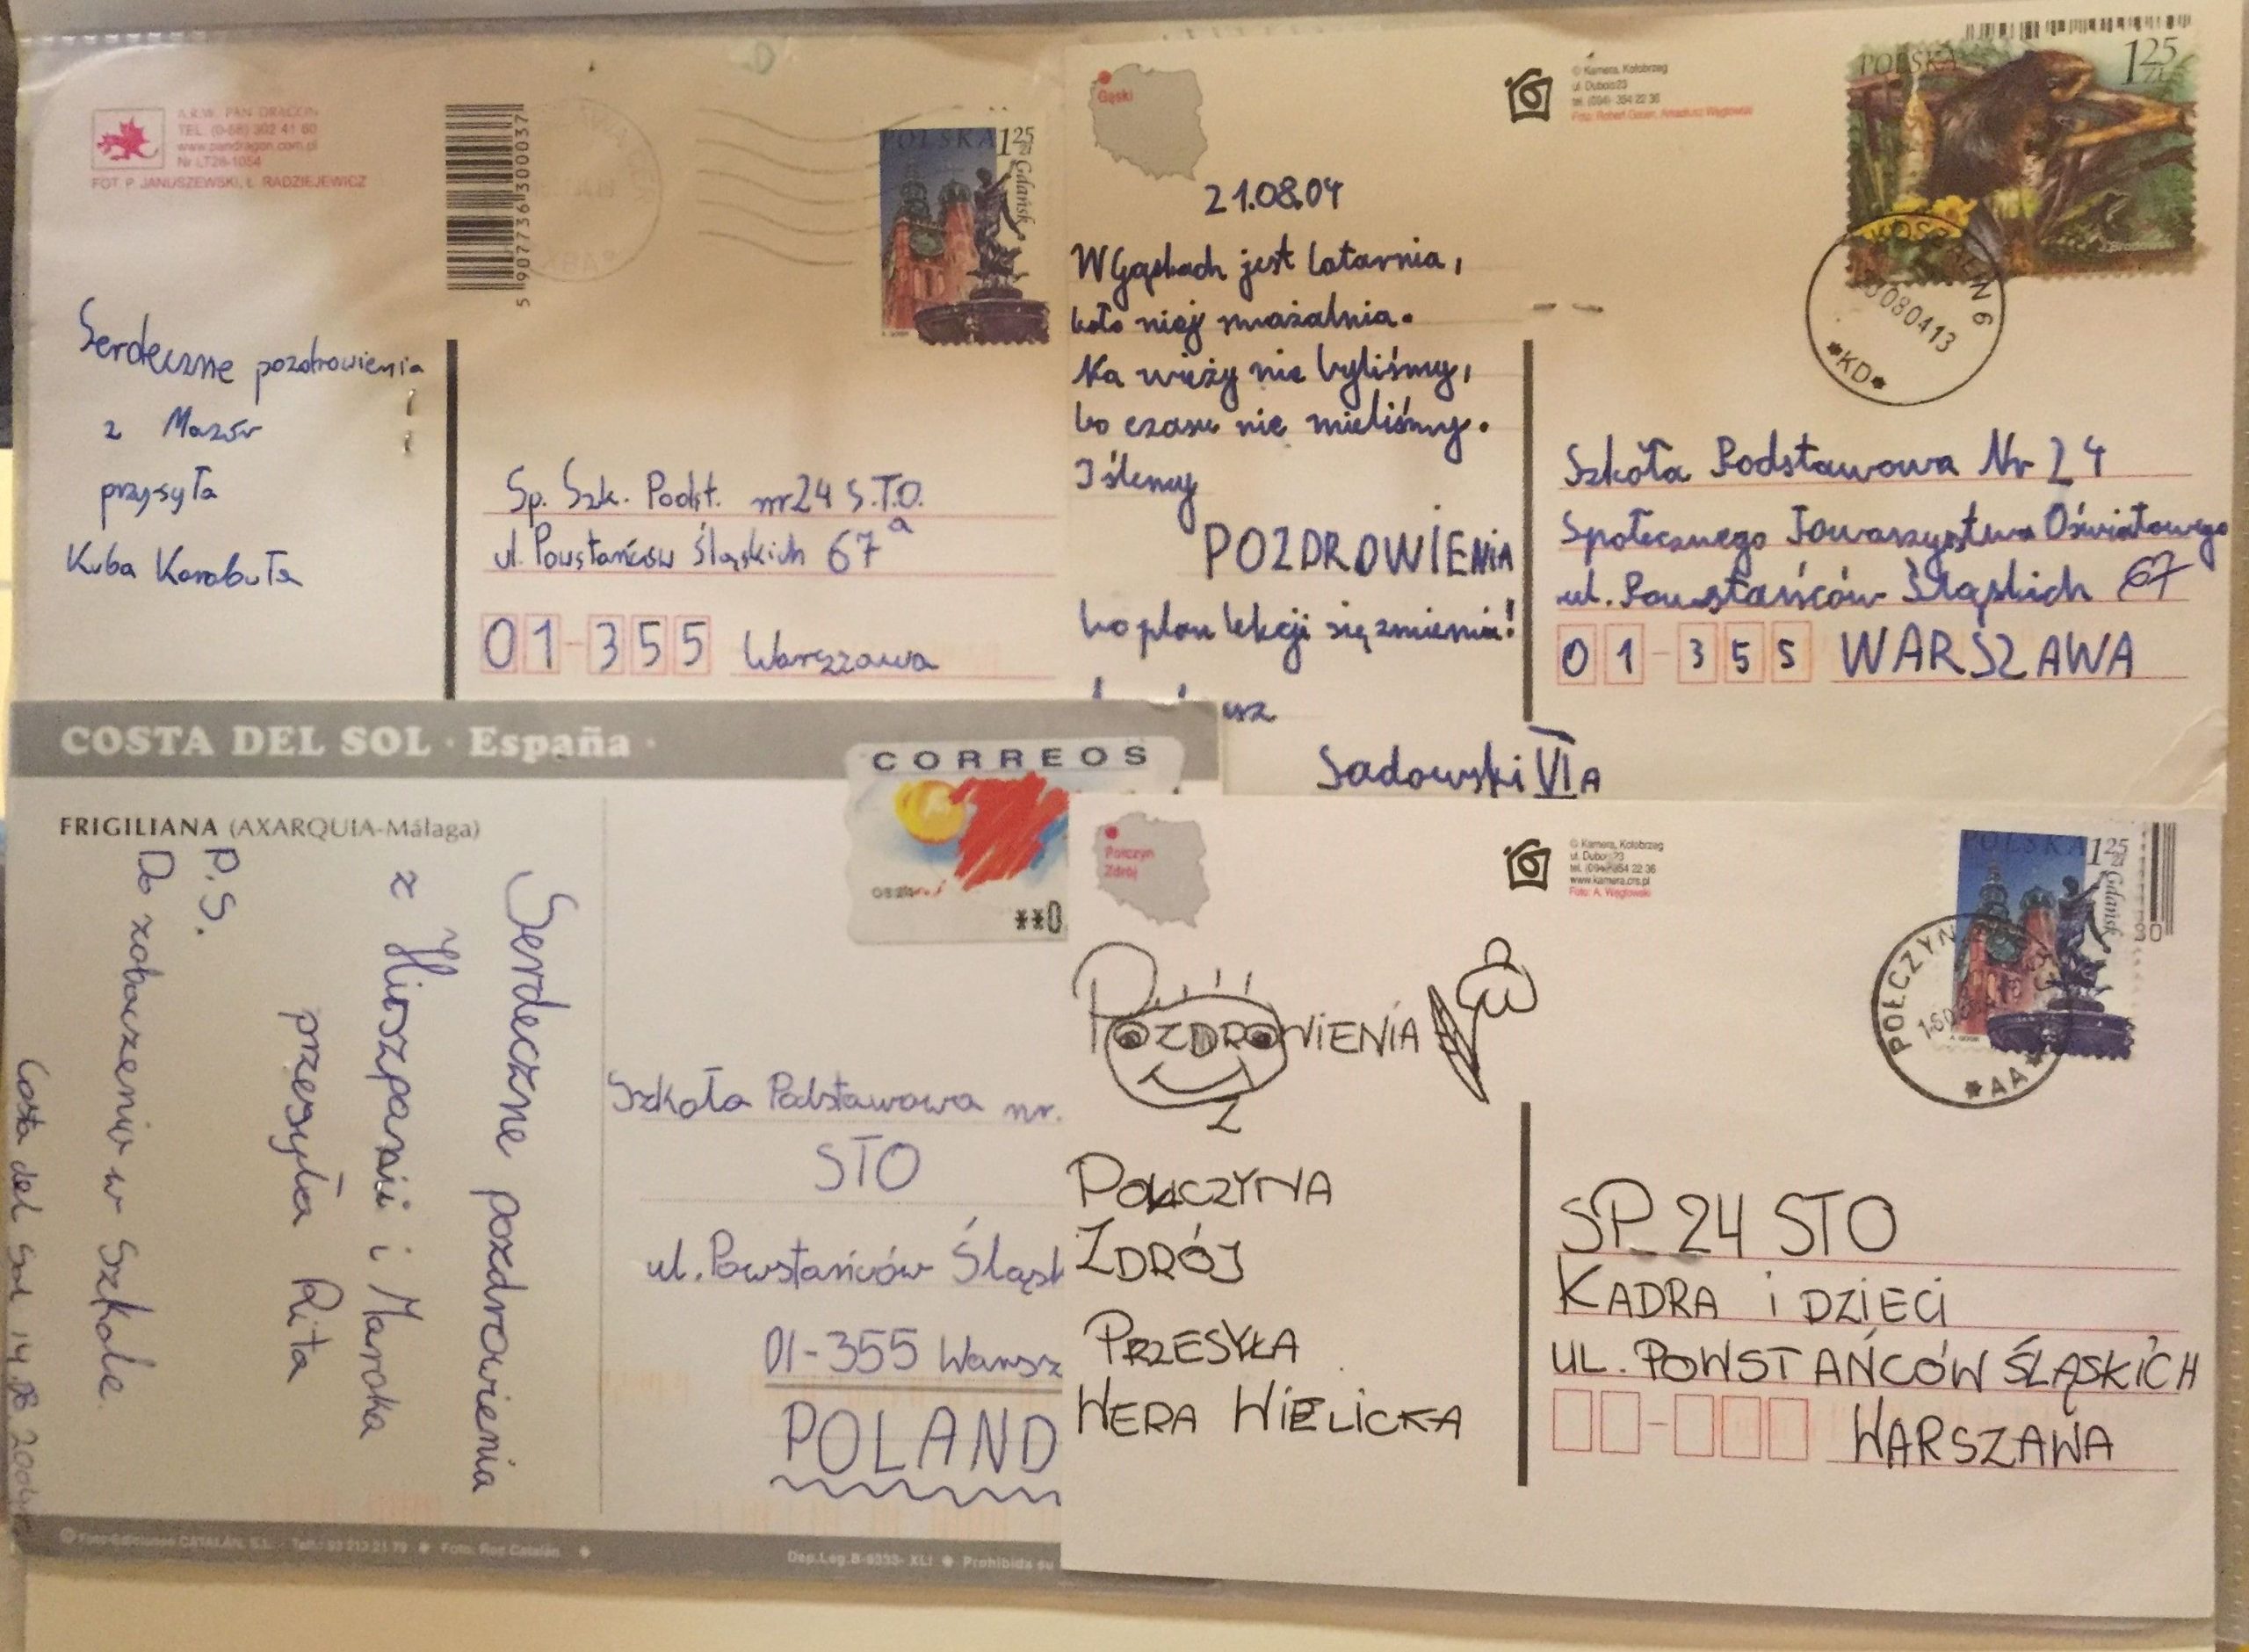 A.R.W. PAN DRAGON
TEL. (0-58) 302 41 60
www.pandragon.com.pl
Nr LT28-1054
FOT. P. JANUSZEWSKI, Ł. RADZIEJEWICZ
5 907736 300037
POLSKA 1 25 zł
Gdańsk
Serdeczne pozdrowienia
z Mazór
przysyła
Kuba Karabuła
Sp. Szk. Podst. nr 24 S.T.O.
ul. Powstańców Śląskich 67a
01-355 Warszawa
Gąski
© Kamera, Kołobrzeg
ul. Dubois 23
tel. (094) 354 22 36
POLSKA 1 25 ZŁ
KOSZALIN 6
080413
*KD*
21.08.04
W Gąskach jest latarnia,
koło niej smażalnia.
Na wieży nie byliśmy,
bo czasu nie mieliśmy.
I ślemy
POZDROWIENIA
bo plan lekcji się zmienia!
usz
Sadowski VI A
Szkoła Podstawowa Nr 24
Społecznego Towarzystwa Oświatowego
ul. Powstańców Śląskich 67
01-355 WARSZAWA
COSTA DEL SOL · España ·
CORREOS
**0
FRIGILIANA (AXARQUIA-Málaga)
Serdeczne pozdrowienia
z Hiszpanii i Maroka
przesyła Rita
P.S.
Do zobaczenia w Szkole
Costa del Sol 14.08.2004
Szkoła Podstawowa nr.
STO
ul. Powstańców Śląsk
01-355 Warsz
POLAND
© Foto-Ediciones CATALÁN, S.L. Telf.: 93 213 21 79 Foto: Roc Catalán
Dep. Leg. B-6333-XLI Prohibida su
Połczyn
Zdrój
© Kamera, Kołobrzeg
ul. Dubois 23
tel. (094) 354 22 36
www.kamera.crs.pl
Foto: A. Węglowski
POLSKA 1 25 zł
Gdańsk
POŁCZYN
*AA*
POZDROWIENIA
Z
POŁCZYNA
ZDRÓJ
PRZESYŁA
WERA WIELICKA
SP 24 STO
KADRA i DZIECI
UL. POWSTAŃCÓW ŚLĄSKICH
WARSZAWA